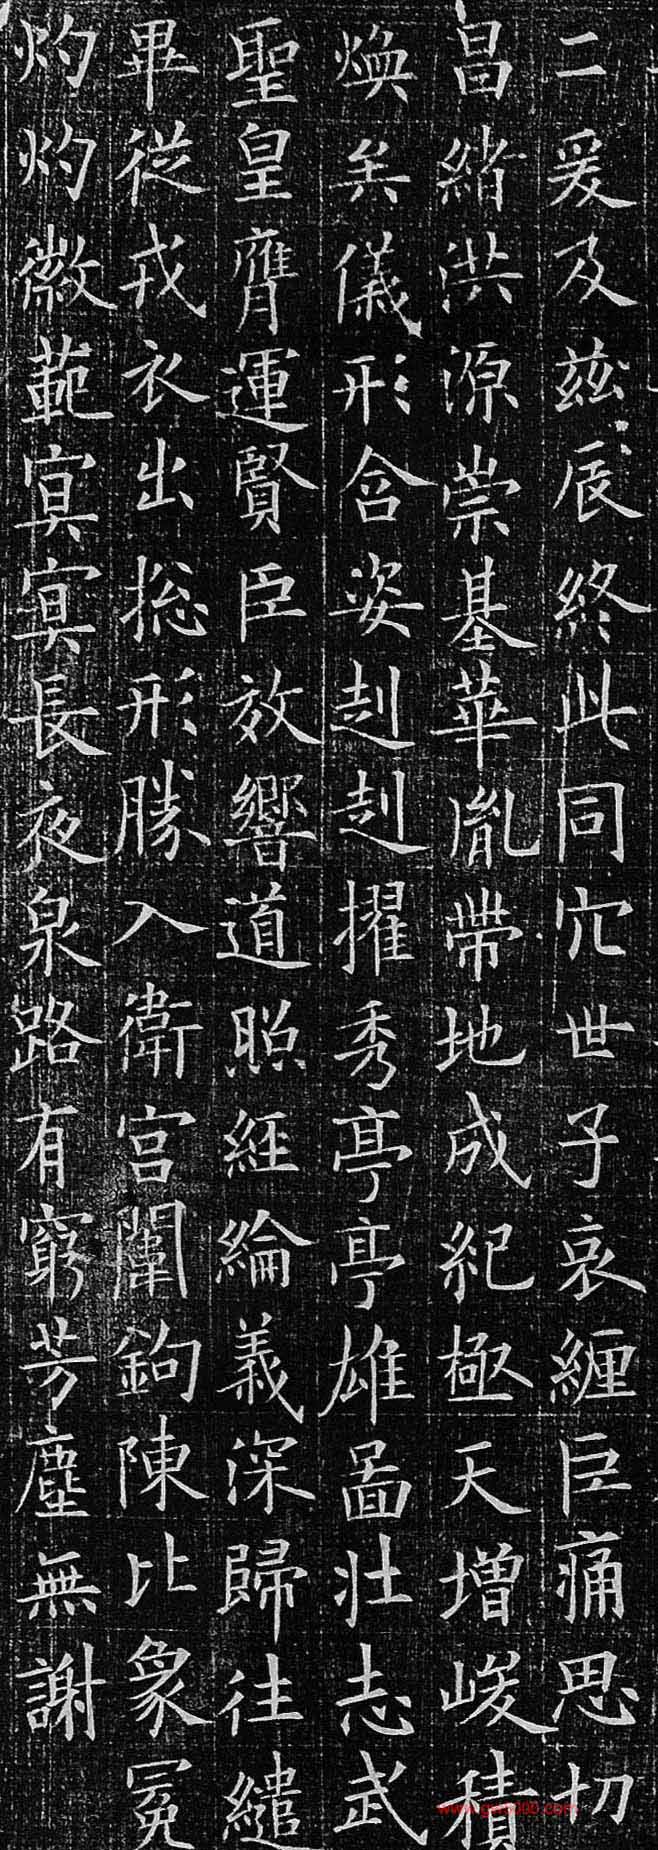 二爰及茲辰終此同穴世子哀纏巨痛思切
昌緒洪源崇基華胤帶地成紀極天增峻積
煥矣儀形含姿赳赳擢秀亭亭雄圖壯志武
聖皇膺運賢臣效響道照經綸義深歸往繾
畢從戎衣出總形勝入衛宮闈鉤陳比象冕
灼灼徽範寘寘長夜泉路有窮芳塵無謝